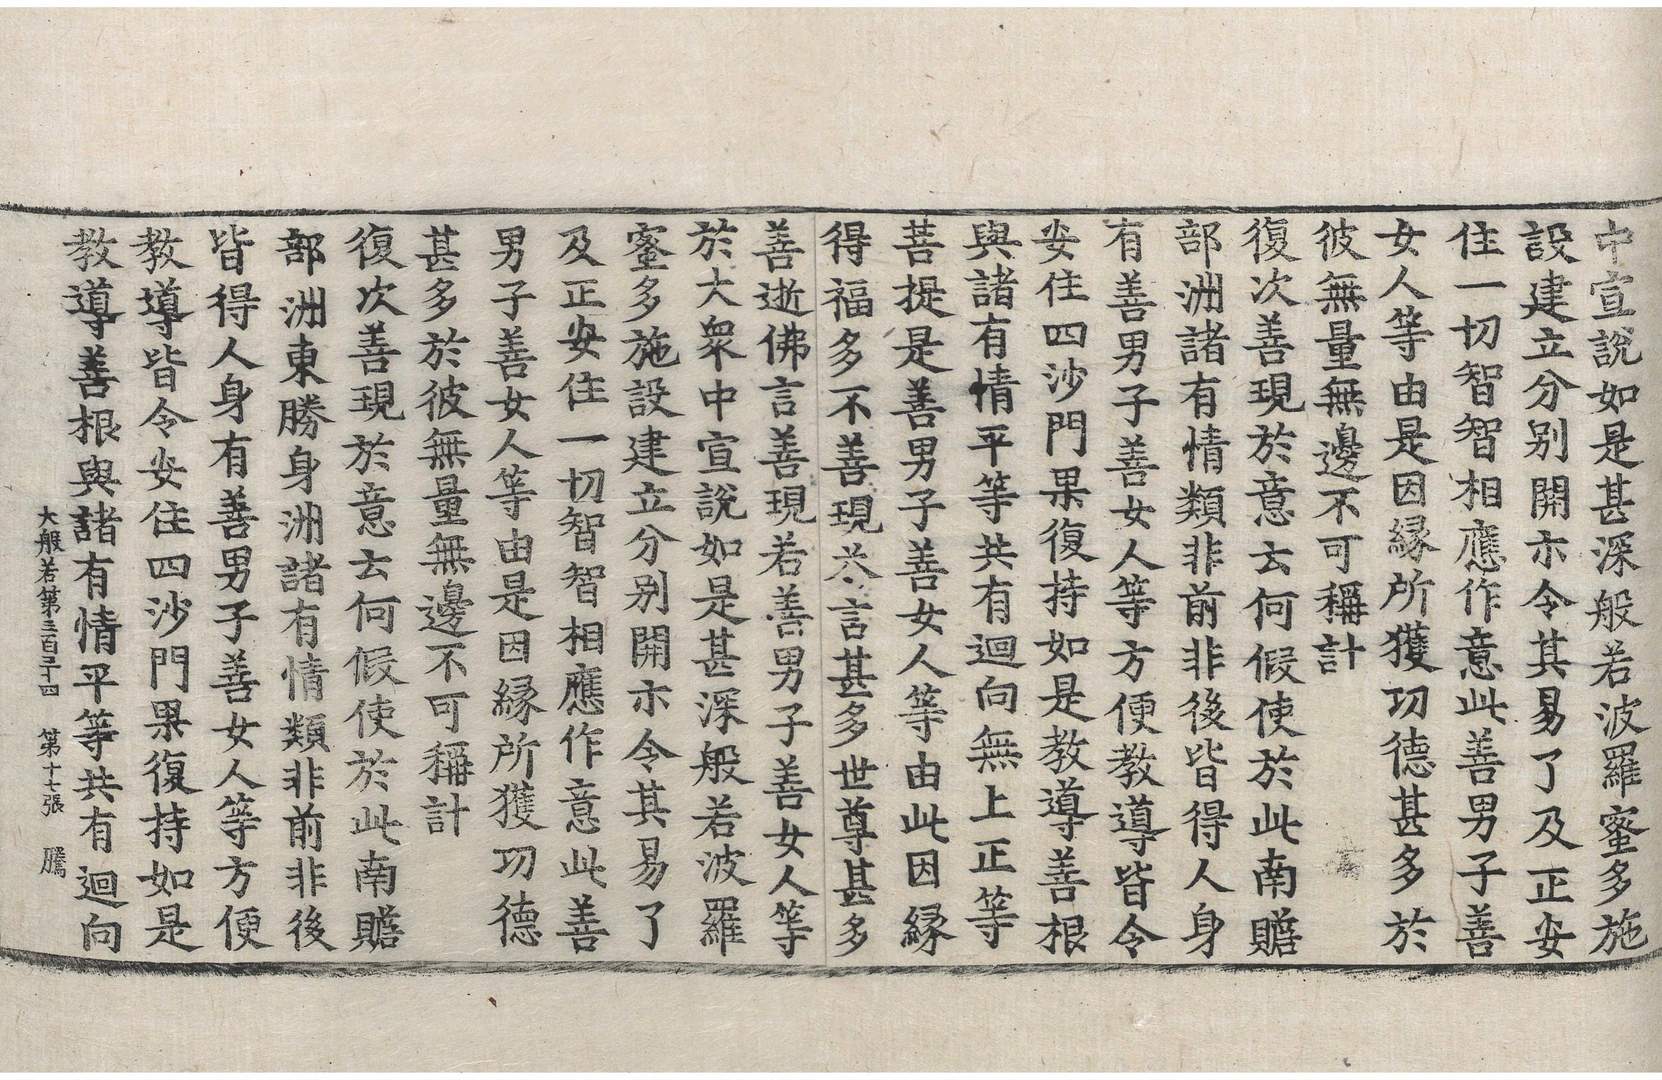 中宣說如是甚深般若波羅蜜多施
設建立分别開示令其易了及正安
住一切智智相應作意此善男子善
女人等由是因縁所獲功德甚多於
彼無量無邊不可稱計
復次善現於意云何假使於此南贍
部洲諸有情類非前非後皆得人身
有善男子善女人等方便教導皆令
安住四沙門果復持如是教導善根
與諸有情平等共有迴向無上正等
菩提是善男子善女人等由此因縁
得福多不善現荅言甚多世尊甚多
善逝佛言善現若善男子善女人等
於大衆中宣說如是甚深般若波羅
蜜多施設建立分别開示令其易了
及正安住一切智智相應作意此善
男子善女人等由是因縁所獲功德
甚多於彼無量無邊不可稱計
復次善現於意云何假使於此南贍
部洲東勝身洲諸有情類非前非後
皆得人身有善男子善女人等方便
教導皆令安住四沙門果復持如是
教導善根與諸有情平等共有迴向
大般若第三百二十四 第十七張 騰